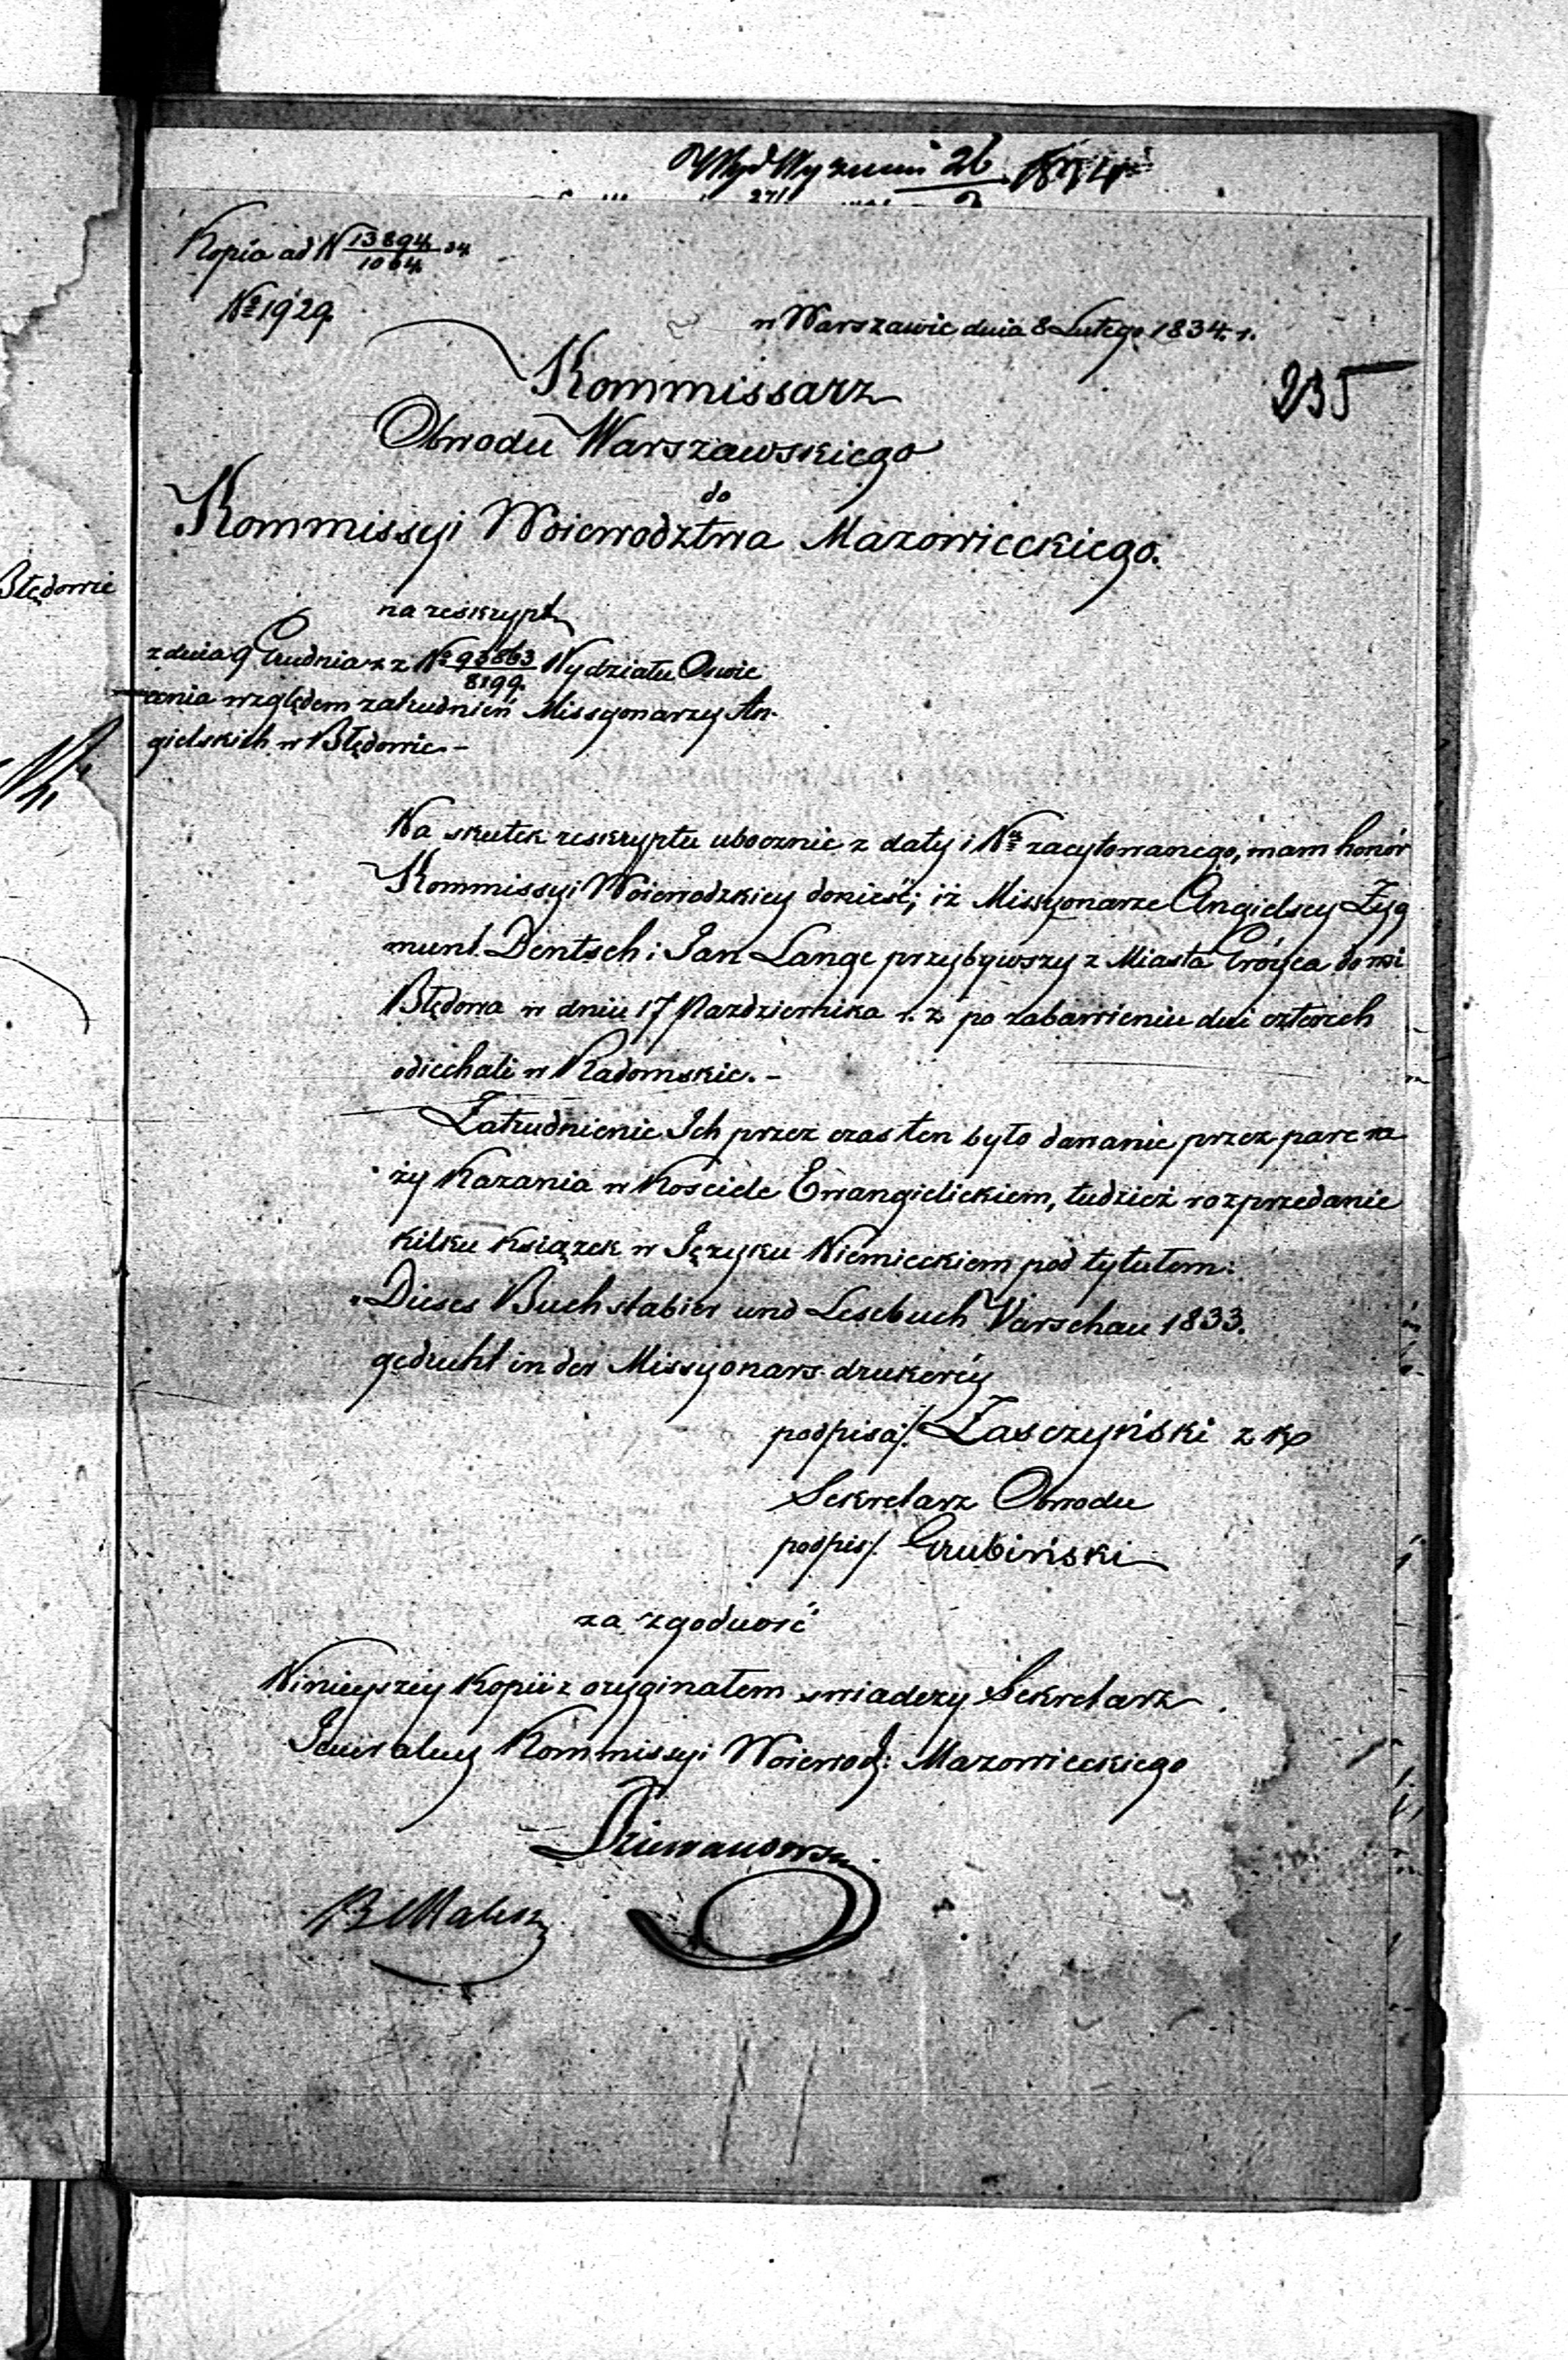 Wyd Wyznań 26
Kopia ad N 13894/1064 34
№ 1929.
w Warszawie dnia 8 Lutego 1834. r.
235
Kommissarz
Obwodu Warszawskiego
do
Kommissyi Woiewodztwa Mazowieckiego.
Błędowie
na reskrypt
z dnia 9 Grudnia r z № 93863/8199. Wydziału Oswie
cenia względem zatrudnień Missyonarzy An-
gielskich w Błędowie.-
Na skutek reskryptu ubocznie z daty i Nru zacytowanego, mam honór
Kommissyi Woiewodzkiey donieść; iż Missyonarze Angielscy Zyg
munt. Dentsch i Jan Lange przybywszy z Miasta Gróyca do mi
Błędowa w dniu 17 Pazdziernika r. z po zabawieniu dni czterech
odiechali w Radomskie.-
Zatrudnienie Ich przez czas ten było dawanie przez pare ra
zy Kazania w Kosciele Ewangielickiem, tudzież rozprzedanie
kilku książek w Języku Niemieckiem pod tytułem:
„Dieses Buchstabier und Lesebuch Warschau 1833.
gedruht in der Missyonars drukeréy
podpisa/. Zasczyński z kp
Sekretarz Obwodu
podpis/. Grubiński
za zgodność
Ninieyszéy Kopii z oryginałem swiadczy Sekretarz
Jeneralny Kommissyi Woiewodz: Mazowieckiego